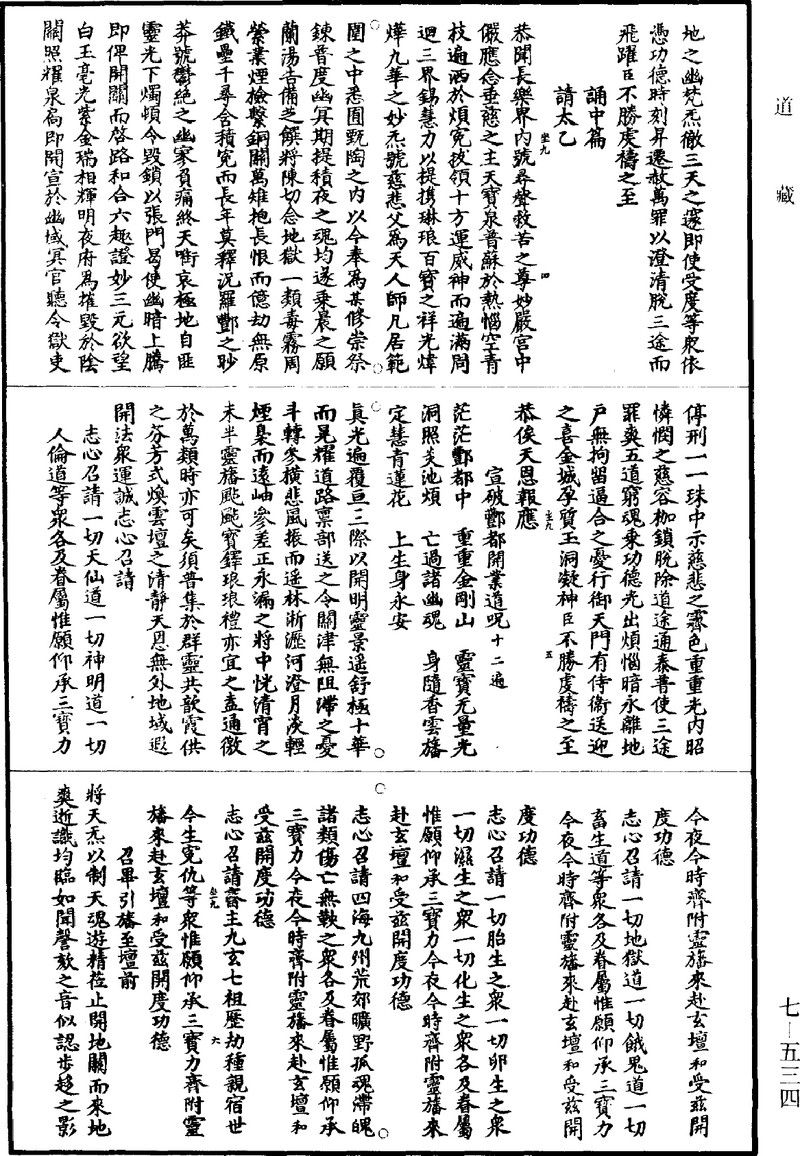 道藏
地之幽梵炁徹三天之邃即使受度等衆依
憑功德時刻昇遷赦萬罪以澄清脫三途而
飛躍臣不勝虔禱之至
誦中篇
請太乙
恭聞長樂界內號尋聲救苦之尊妙嚴宮中
儼應念垂慈之主天寶泉普蘇於熱惱空青
枝遍洒於煩冤披領十方運威神而遍滿周
迴三界錫慧力以提携琳琅百寶之祥光煒
燁九華之妙炁號慈悲父為天人師凡居範
圍之中悉囿甄陶之内以今奉為某修崇祭
鍊普度幽冥期提積夜之魂均遂乘晨之願
蘭湯吉備芝饌將陳切念地獄一類毒霧周
縈業煙撿繫銅關萬雉抱長恨而億劫無原
鐵壘千尋含積冤而長年莫釋況羅酆之眇
莽號鬱絕之幽家負痛終天喞哀極地自匪
靈光下燭頓令毀鎖以張門曷使幽暗上騰
即俾開關而啓路和合六趣證妙三元欲望
白玉毫光紫金瑞相輝明夜府為摧毀於陰
關照耀泉扃即開宣於幽域冥官聽令獄吏
停刑一一珠中示慈悲之霽色重重光内昭
憐憫之慈容枷鎖脫除道途通泰普使三途
罪爽五道窮魂乘功德光出煩惱暗永離地
戶無拘留逼合之憂行御天門有侍衛送迎
之喜金城孕質玉洞歘神臣不勝虔禱之至
恭俟天恩報應
宣破酆都開業道呪十二遍
茫茫酆都中　重重金剛山　靈寶无量光
洞照炎池煩　亡過諸幽魂　身隨香雲旛
定慧青蓮花　上生身永安
真光遍覆亘三際以開明靈景遥舒極十華
而晃耀道路禀部送之令關津無阻滯之憂
斗轉參橫悲風振而遥林淅瀝河澄月淡輕
煙裊而遠岫參差正永漏之將中恍清宵之
未半靈旛颭颭寶鐸琅琅禮亦宜之盍通徹
於萬類時亦可矣須普集於群靈共歆霞供
之芬芳式煥雲壇之清靜天恩無外地域遐
開法衆運誠志心召請
志心召請一切天仙道一切神明道一切
人倫道等衆各及眷屬惟願仰承三寶力
今夜今時齊附靈旛來赴玄壇和受兹開
度功德
志心召請一切地獄道一切餓鬼道一切
畜生道等衆各及眷屬惟願仰承三寶力
今夜今時齊附靈旛來赴玄壇和受兹開
度功德
志心召請一切胎生之衆一切卵生之衆
一切濕生之衆一切化生之衆各及眷屬
惟願仰承三寶力今夜今時齊附靈旛來
赴玄壇和受兹開度功德
志心召請四海九州荒郊曠野孤魂滯魄
諸類傷亡無鞅之衆各及眷屬惟願仰承
三寶力今夜今時齊附靈旛來赴玄壇和
受兹開度功德
志心召請齋主九玄七祖歷劫種親宿世
今生冤仇等衆惟願仰承三寶力齊附靈
旛來赴玄壇和受兹開度功德
召畢引旛至壇前
將天炁以制天魂遊精莅止開地關而來地
爽逝識均臨如聞謦欬之音似認步趍之影
七—五三四